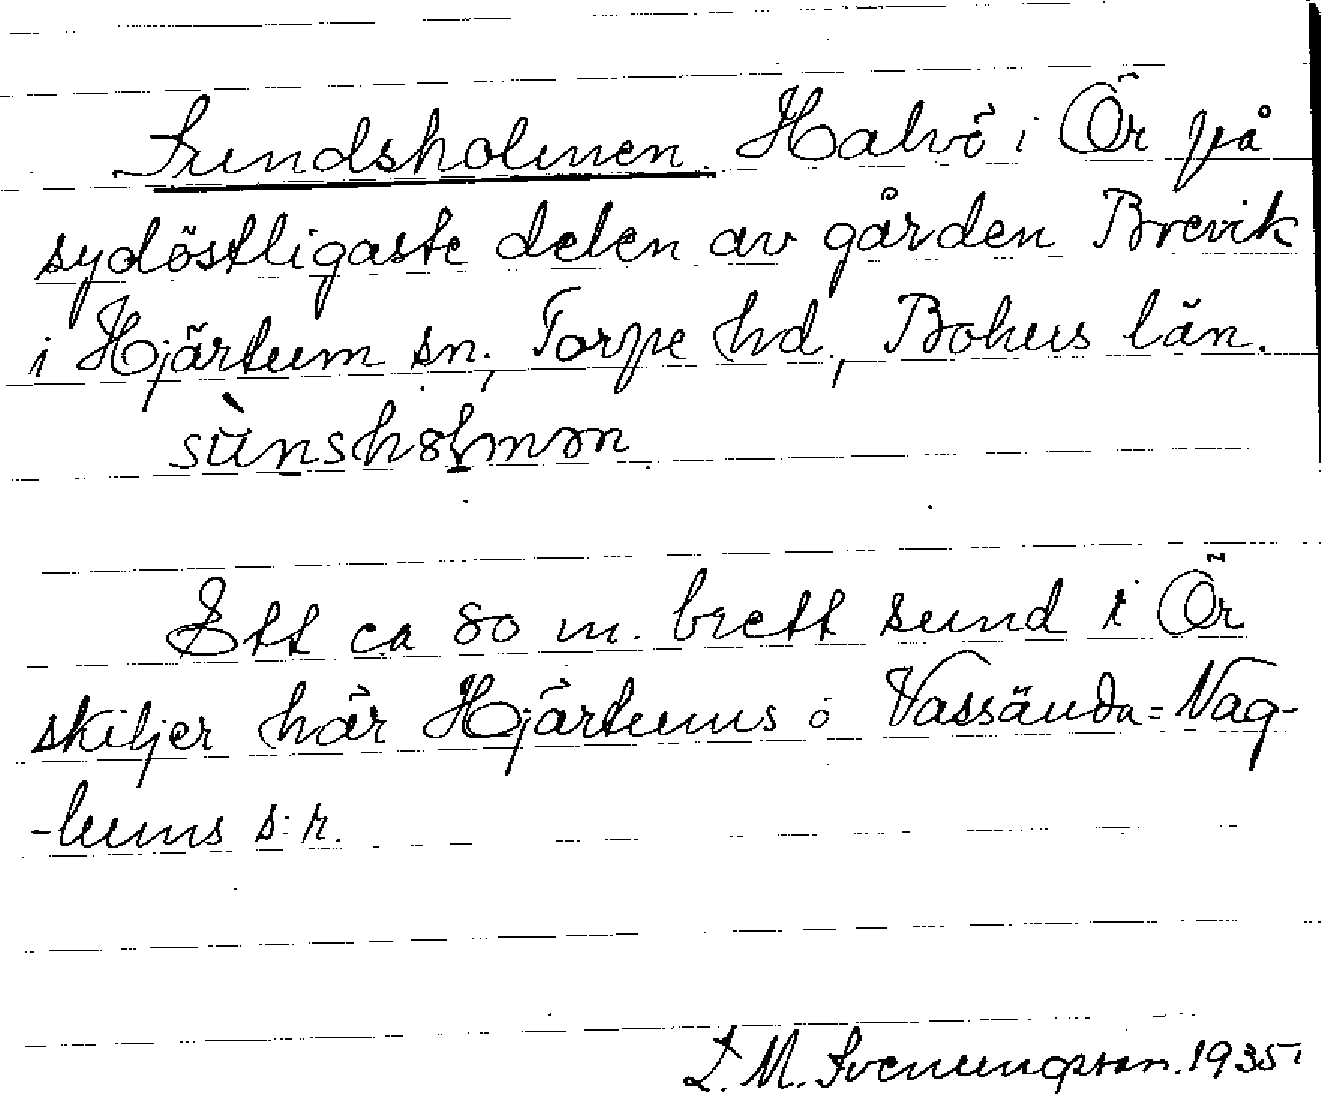 Sundsholmen. Halvö i Ör på
sydöstligaste delen av gården Brevik
i Hjärtum sn., Torpe hd., Bohus län.
sùnshólmən
Ett ca 80 m. brett sund i Ör
skiljer här Hjärtums o Vassända=Nag-
-lums s:r.
L. M. Svenungsson. 1935